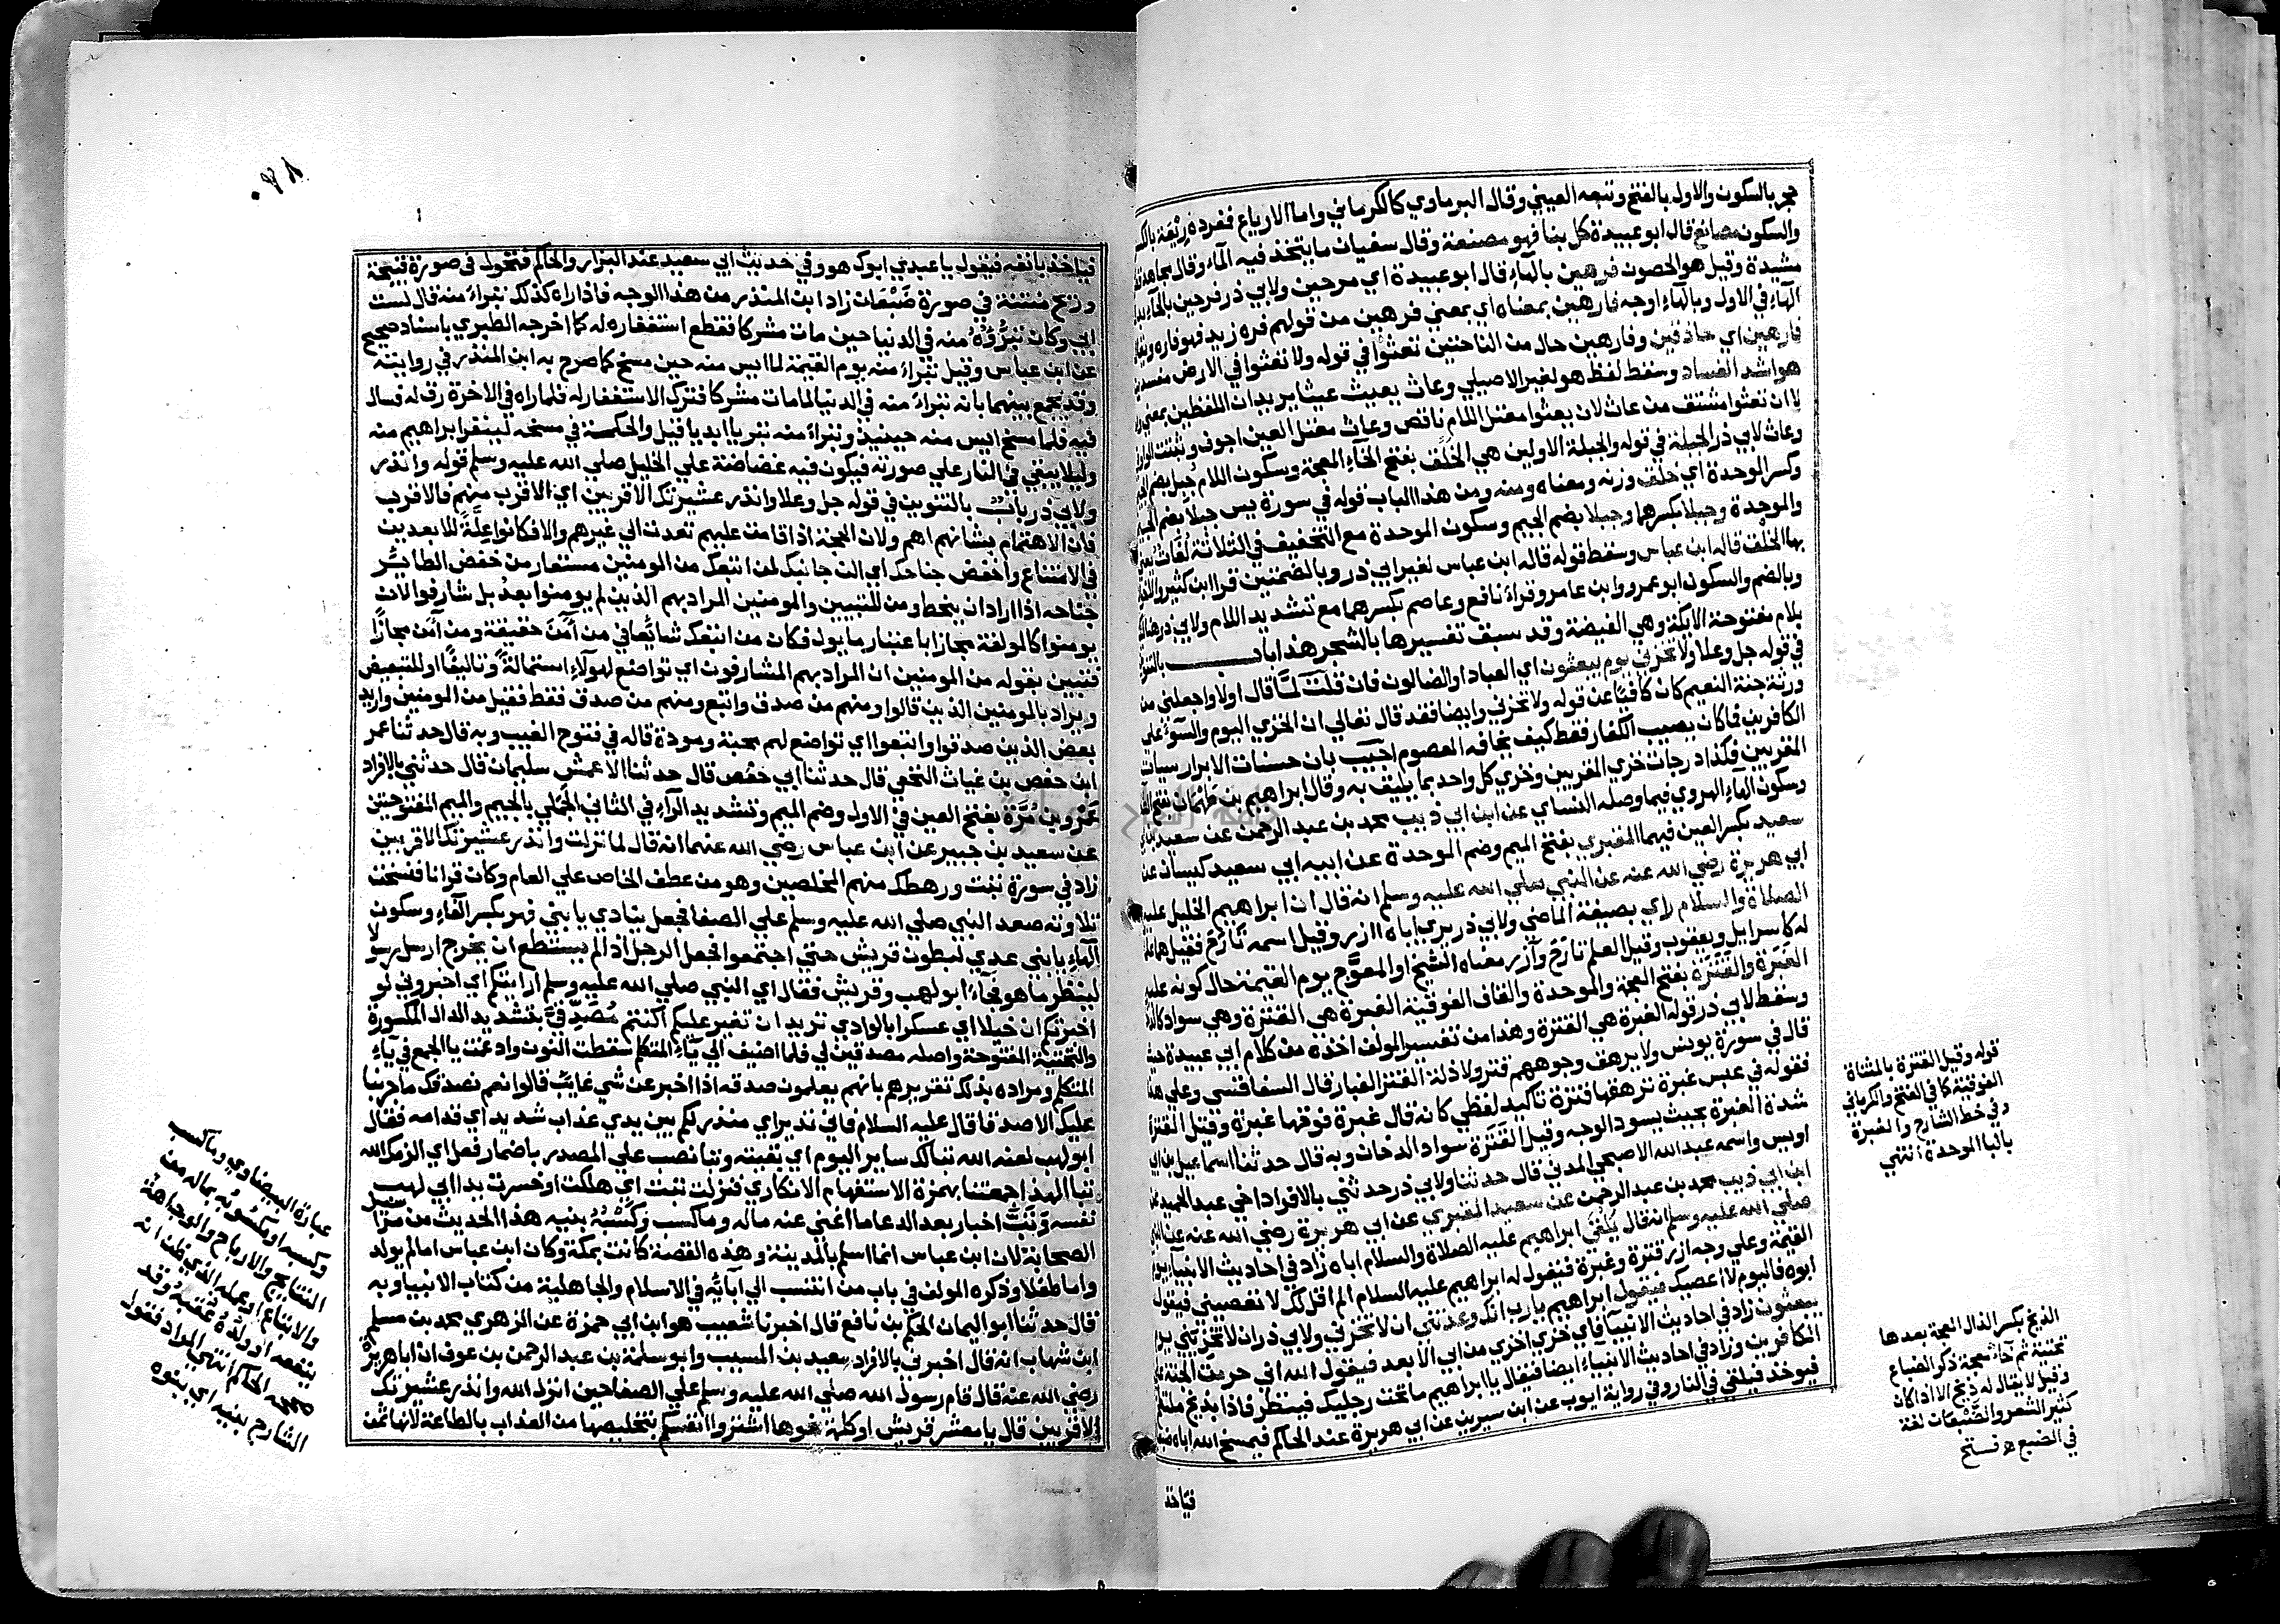 حجر بالسكون والاول بالفتح وتبعه العيني وقال البرماوي كالكرماني واما الارياع ففرده ريعة بالكسر
والسكون مصانع قال ابو عبيدة كل بنا فهو مصنعة وقال سفيان ما يتخذ فيه الماء وقال مجاهد
مشيدة وقيل هو الحصون فرهين بالهاء قال ابو عبيدة اي مرحين ولابي ذر فرحين بالحاء
الهاء في الاول وبالهاء اوجه فارهين بمعناه اي بمعني فرهين من قولهم فره زيد فهو فاره
فارهين اي حاذقين وفارهين حال من الناحتين تعثوا في قوله ولا تعثوا في الارض مفسدين
هو اشد الفساد وسقط لفظ هو لغير الاصيلي وعاث يعيث عيثا يريد ان اللفظين بمعني
لا ان تعثوا مشتق من عاث لان يعثوا معتل اللام ناقص وعاث معتل العين اجوف وثبتت الواو
وعاث لابي ذر الجبلة في قوله والجبلة الاولين هي الخلق بفتح الخاء المعجمة وسكون اللام جبل بضم الجيم
وكسر الوحدة اي خلق وزنه ومعناه ومنه ومن هذا الباب قوله في سورة يس جبلا بضم الجيم
والموحدة وجبلا بكسرهما وجبلا بضم الجيم وسكون الموحدة مع التخفيف في الثلاثة لغات يعني
بها الخلق قاله ابن عباس وسقط قوله قاله ابن عباس لغير ابي ذر وبالضمتين قرا ابن كثير
وبالضم والسكون ابو عمرو وابن عامر وقراء نافع وعاصم بكسرهما مع تشديد اللام ولابي ذر هنا
بلام مفتوحة الايكة وهي الغيضة وقد سبق تفسيرها بالشجر هذا باب بالتنوين
في قوله جل وعلا ولا تخزني يوم يبعثون اي العباد او الضالون فان قلت لما قال اولا واجعلني من
ورثة جنة النعيم كان كافيا عن قوله ولا تخزني وايضا فقد قال تعالي ان الخزي اليوم والسوء علي
الكافرين فما كان يصيب الكفار فقط كيف يخافه المعصوم اجيب بان حسنات الابرار سيات
المقربين فكذا درجات خزي المقربين وخزي كل واحد بما يليق به وقال ابراهيم بن طهمان بفتح
وسكون الهاء الهروي فيما وصله النساي عن ابن ابي ذيب محمد بن عبد الرحمن عن سعيد
سعيد بكسر العين فيهما المقبري بفتح الميم وضم الموحدة عن ابيه ابي سعيد كيسان عن
ابي هريرة رضي الله عنه عن النبي صلي الله عليه وسلم انه قال ان ابراهيم الخليل عليه
الصلاة والسلام راي بصيغة الماضي ولابي ذر يري اباه ازر وقيل اسمه تارح فقيل هما علمان
له كاسرايل ويعقوب وقيل العلم تارح وآزر معناه الشيخ او المعوج يوم القيمة حال كونه عليه
الغبرة والقترة بفتح المعجمة والموحدة والقاف الفوقية الغبرة هي القترة وهي سواد كالدخان
وسقط لابي ذر قوله الغبرة هي القترة وهذا من تفسير المولف اخذه من كلام ابي عبيدة حيث
قال في سورة يونس ولا يرهق وجوههم قتر ولا ذلة القتر الغبار قال السفاقسي وعلي هذا
فقوله في عبس غبرة ترهقها قترة تاكيد لفظي كانه قال غبرة فوقها غبرة وقيل القترة
شدة الغبرة بحيث يسود الوجه وقيل القترة سواد الدخان وبه قال حدثنا اسماعيل بن ابي
اويس واسمه عبد الله الاصبحي المدني قال حدثنا ولابي ذر حدثني بالافراد اخي عبد الحميد عن
ابن ابي ذيب محمد بن عبد الرحمن عن سعيد المقبري عن ابي هريرة رضي الله عنه عن النبي
صلي الله عليه وسلم انه قال يلقي ابراهيم عليه الصلاة والسلام اباه زاد في احاديث الانبيا يوم
القيمة وعلي وجه ازر قترة وغبرة فيقول له ابراهيم عليه السلام الم اقل لك لا تعصيني فيقول
ابوه فاليوم لا اعصيك فيقول ابراهيم يا رب انك وعدتني ان لا تخزني ولابي ذر ان لا تخزيني يوم
يبعثون زاد في احاديث الانبيا فاي خزي اخزي من ابي الابعد فيقول الله اني حرمت الجنة علي
الكافرين وزاد في احاديث الانبياء ايضا فيقال يا ابراهيم ما تحت رجليك فينظر فاذا بذيخ ملتطخ
فيوخذ فيلقي في النار وفي رواية ايوب عن ابن سيرين عن ابي هريرة عند الحاكم فيمسخ الله اباه ضبعا
فياخذ
قوله وقيل القترة بالمثناة
الفوقية كما في الفتح والكرماني
وفي خط الشارح والغبرة
بالبا الموحدة انتهي
الذيخ بكسر الذال المعجمة بعدها
تحتية ثم خاء معجمة ذكر الضباع
وقيل لا يقال له ذيخ الا اذا كان
كثير الشعر والضبعان لغة
في الضبع ه فتح
٠٢٨
فياخذ بانفه فيقول يا عبدي ابوك هو وفي حديث ابي سعيد عند البزار والحاكم فتحول في صورة قبيحة
وريح منتنة في صورة ضبعان زاد ابن المنذر من هذا الوجه فاذا راه كذلك تبراء منه قال لست
ابي وكان تبرؤه منه في الدنيا حين مات مشركا فقطع استغفاره له كما اخرجه الطبري باسناد صحيح
عن ابن عباس وقيل تبراء منه يوم القيمة لما ايس منه حين مسخ كما صرح به ابن المنذر في روايته
وقد يجمع بينهما بانه تبراء منه في الدنيا لما مات مشركا فترك الاستغفار له فلما راه في الاخرة رق له فسال
فيه فلما مسخ ايس منه حينيذ وتبراء منه تبريا ابديا قيل والحكمة في مسخه لينفر ابراهيم منه
وليلا يبقي في النار علي صورته فيكون فيه غضاضة علي الخليل صلي الله عليه وسلم قوله وانذر
ولابي ذر باب بالتنوين في قوله جل وعلا وانذر عشيرتك الاقربين اي الاقرب منهم فالاقرب
فان الاهتمام بشانهم اهم ولان الحجة اذا قامت عليهم تعدت الي غيرهم والا فكانوا علة للابعدين
في الامتناع واخفض جناحك اي الن جانبك لمن اتبعك من المومنين مستعار من خفض الطاير
جناحه اذا اراد ان ينحط ومن للتبيين والمومنين المراد بهم الذين لم يومنوا بعد بل شارفوا لان
يومنوا كالمولفة مجازا باعتبار ما يول فكان من اتبعك شائعا في من آمن حقيقة ومن آمن مجازا
فتبين بقوله من المومنين ان المراد بهم المشارفون اي تواضع لهولاء استمالة وتاليفا او للتبعيض
ويراد بالمومنين الذين قالوا ومنهم من صدق واتبع ومنهم من صدق فقط فقيل من المومنين واريد
بعض الذين صدقوا واتبعوا اي تواضع لهم محبة ومودة قاله في فتوح الغيب وبه قال حدثنا عمر
ابن حفص بن غياث النخعي قال حدثنا ابي حفص قال حدثنا الاعمش سليمان قال حدثني بالافراد
عمرو بن مرة بفتح العين في الاول وضم الميم وتشديد الراء في الثاني الجملي بالجيم والميم المفتوحتين
عن سعيد بن جبير عن ابن عباس رضي الله عنهما انه قال لما نزلت وانذر عشيرتك الاقربين
زاد في سورة تبت ورهطك منهم المخلصين وهو من عطف الخاص علي العام وكان قرانا فنسخت
تلاوته صعد النبي صلي الله عليه وسلم علي الصفا فجعل ينادي يا بني فهر بكسر الفاء وسكون
الهاء يا بني عدي لبطون قريش حتي اجتمعوا فجعل الرجل اذا لم يستطع ان يخرج ارسل رسولا
لينظر ما هو فجاء ابو لهب وقريش فقال اي النبي صلي الله عليه وسلم ارايتكم اي اخبروني لو
اخبرتكم ان خيلا اي عسكرا بالوادي تريد ان تغير عليكم اكنتم مصدقي بتشديد الدال المكسورة
والتحتية المفتوحة واصله مصدقين لي فلما اضيف الي ياء المتكلم سقطت النون وادغمت يا الجمع في ياء
المتكلم ومراده بذلك تقريرهم بانهم يعلمون صدقه اذا اخبر عن شي غايب قالوا نعم نصدقك ما جربنا
عليك الا صدقا قال عليه السلام فاني نذير اي منذر لكم بين يدي عذاب شديد اي قدامه فقال
ابو لهب لعنه الله تبا لك ساير اليوم اي بقيته وتبا نصب علي المصدر باضمار فعل اي الزمك الله
تبا الهذا جمعتنا بهمزة الاستفهام الانكاري فنزلت تبت اي هلكت او خسرت يدا ابي لهب
نفسه وتب اخبار بعد الدعا ما اغني عنه ماله وما كسب وكسبه بنيه هذا الحديث من مراسيل
الصحابة لان ابن عباس انما اسلم بالمدينة وهذه القصة كانت بمكة وكان ابن عباس اما لم يولد
واما طفلا وذكره المولف في باب من انتسب الي آبائه في الاسلام والجاهلية من كتاب الانبيا وبه
قال حدثنا ابو اليمان الحكم بن نافع قال اخبرنا شعيب هو ابن ابي حمزة عن الزهري محمد بن مسلم
ابن شهاب انه قال اخبرني بالافراد سعيد بن المسيب وابو سلمة بن عبد الرحمن بن عوف ان ابا هريرة
رضي الله عنه قال قام رسول الله صلي الله عليه وسلم علي الصفا حين انزل الله وانذر عشيرتك
الاقربين قال يا معشر قريش او كلمة نحوها اشتروا انفسكم بتخليصها من العذاب بالطاعة لانها ثمن
عبارة البيضاوي وما كسب
وكسبه او مكسوبه بماله من
النتايج والارباح والوجاهة
والاتباع او عمله الذي ظن انه
ينفعه او ولده عتبة وقد
صححه الحاكم انتهي المراد فقول
الشارح بنيه اي بنوه